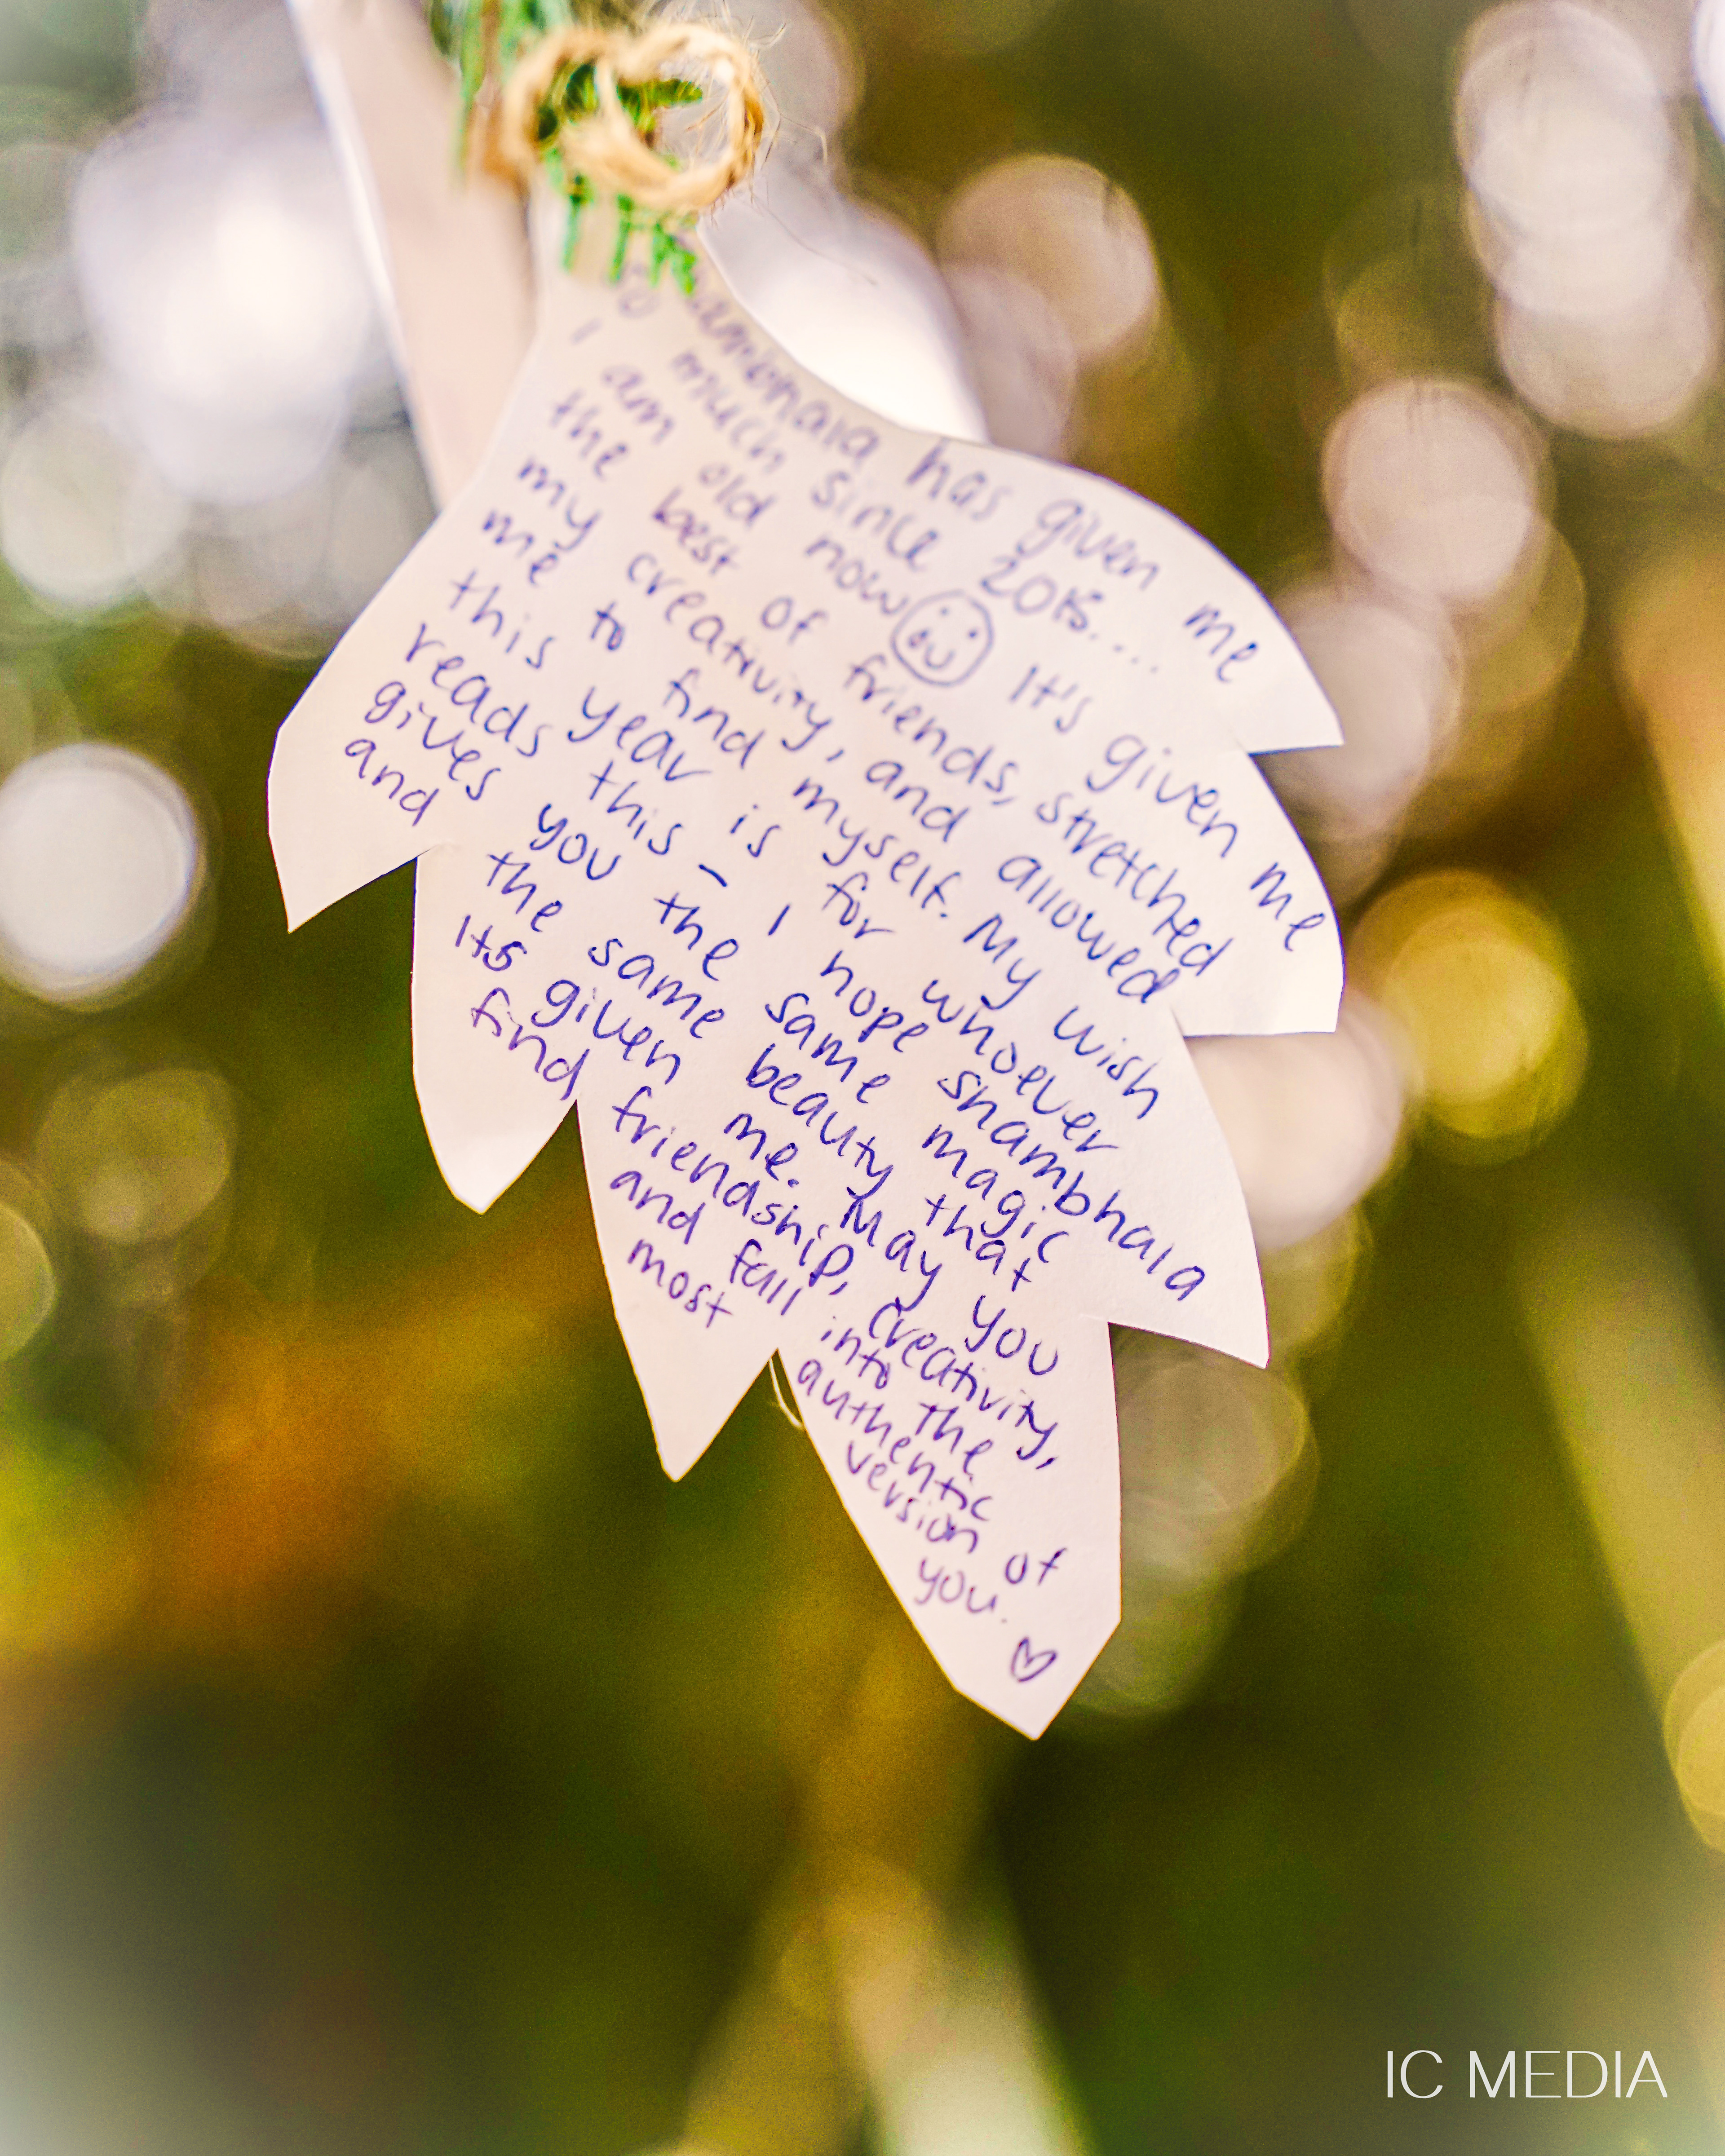 Shambhala has given me
so much since
I am old now It's given me
the best of friends, stretched
my creativity, and allowed
me to find myself. My wish
this year is for whoever
reads this - I hope shambhala
gives you the same magic
and the same beauty that
Its given me. May you
find friendship, creativity,
and fall into the
most authentic
version of
you. ♡
IC MEDIA